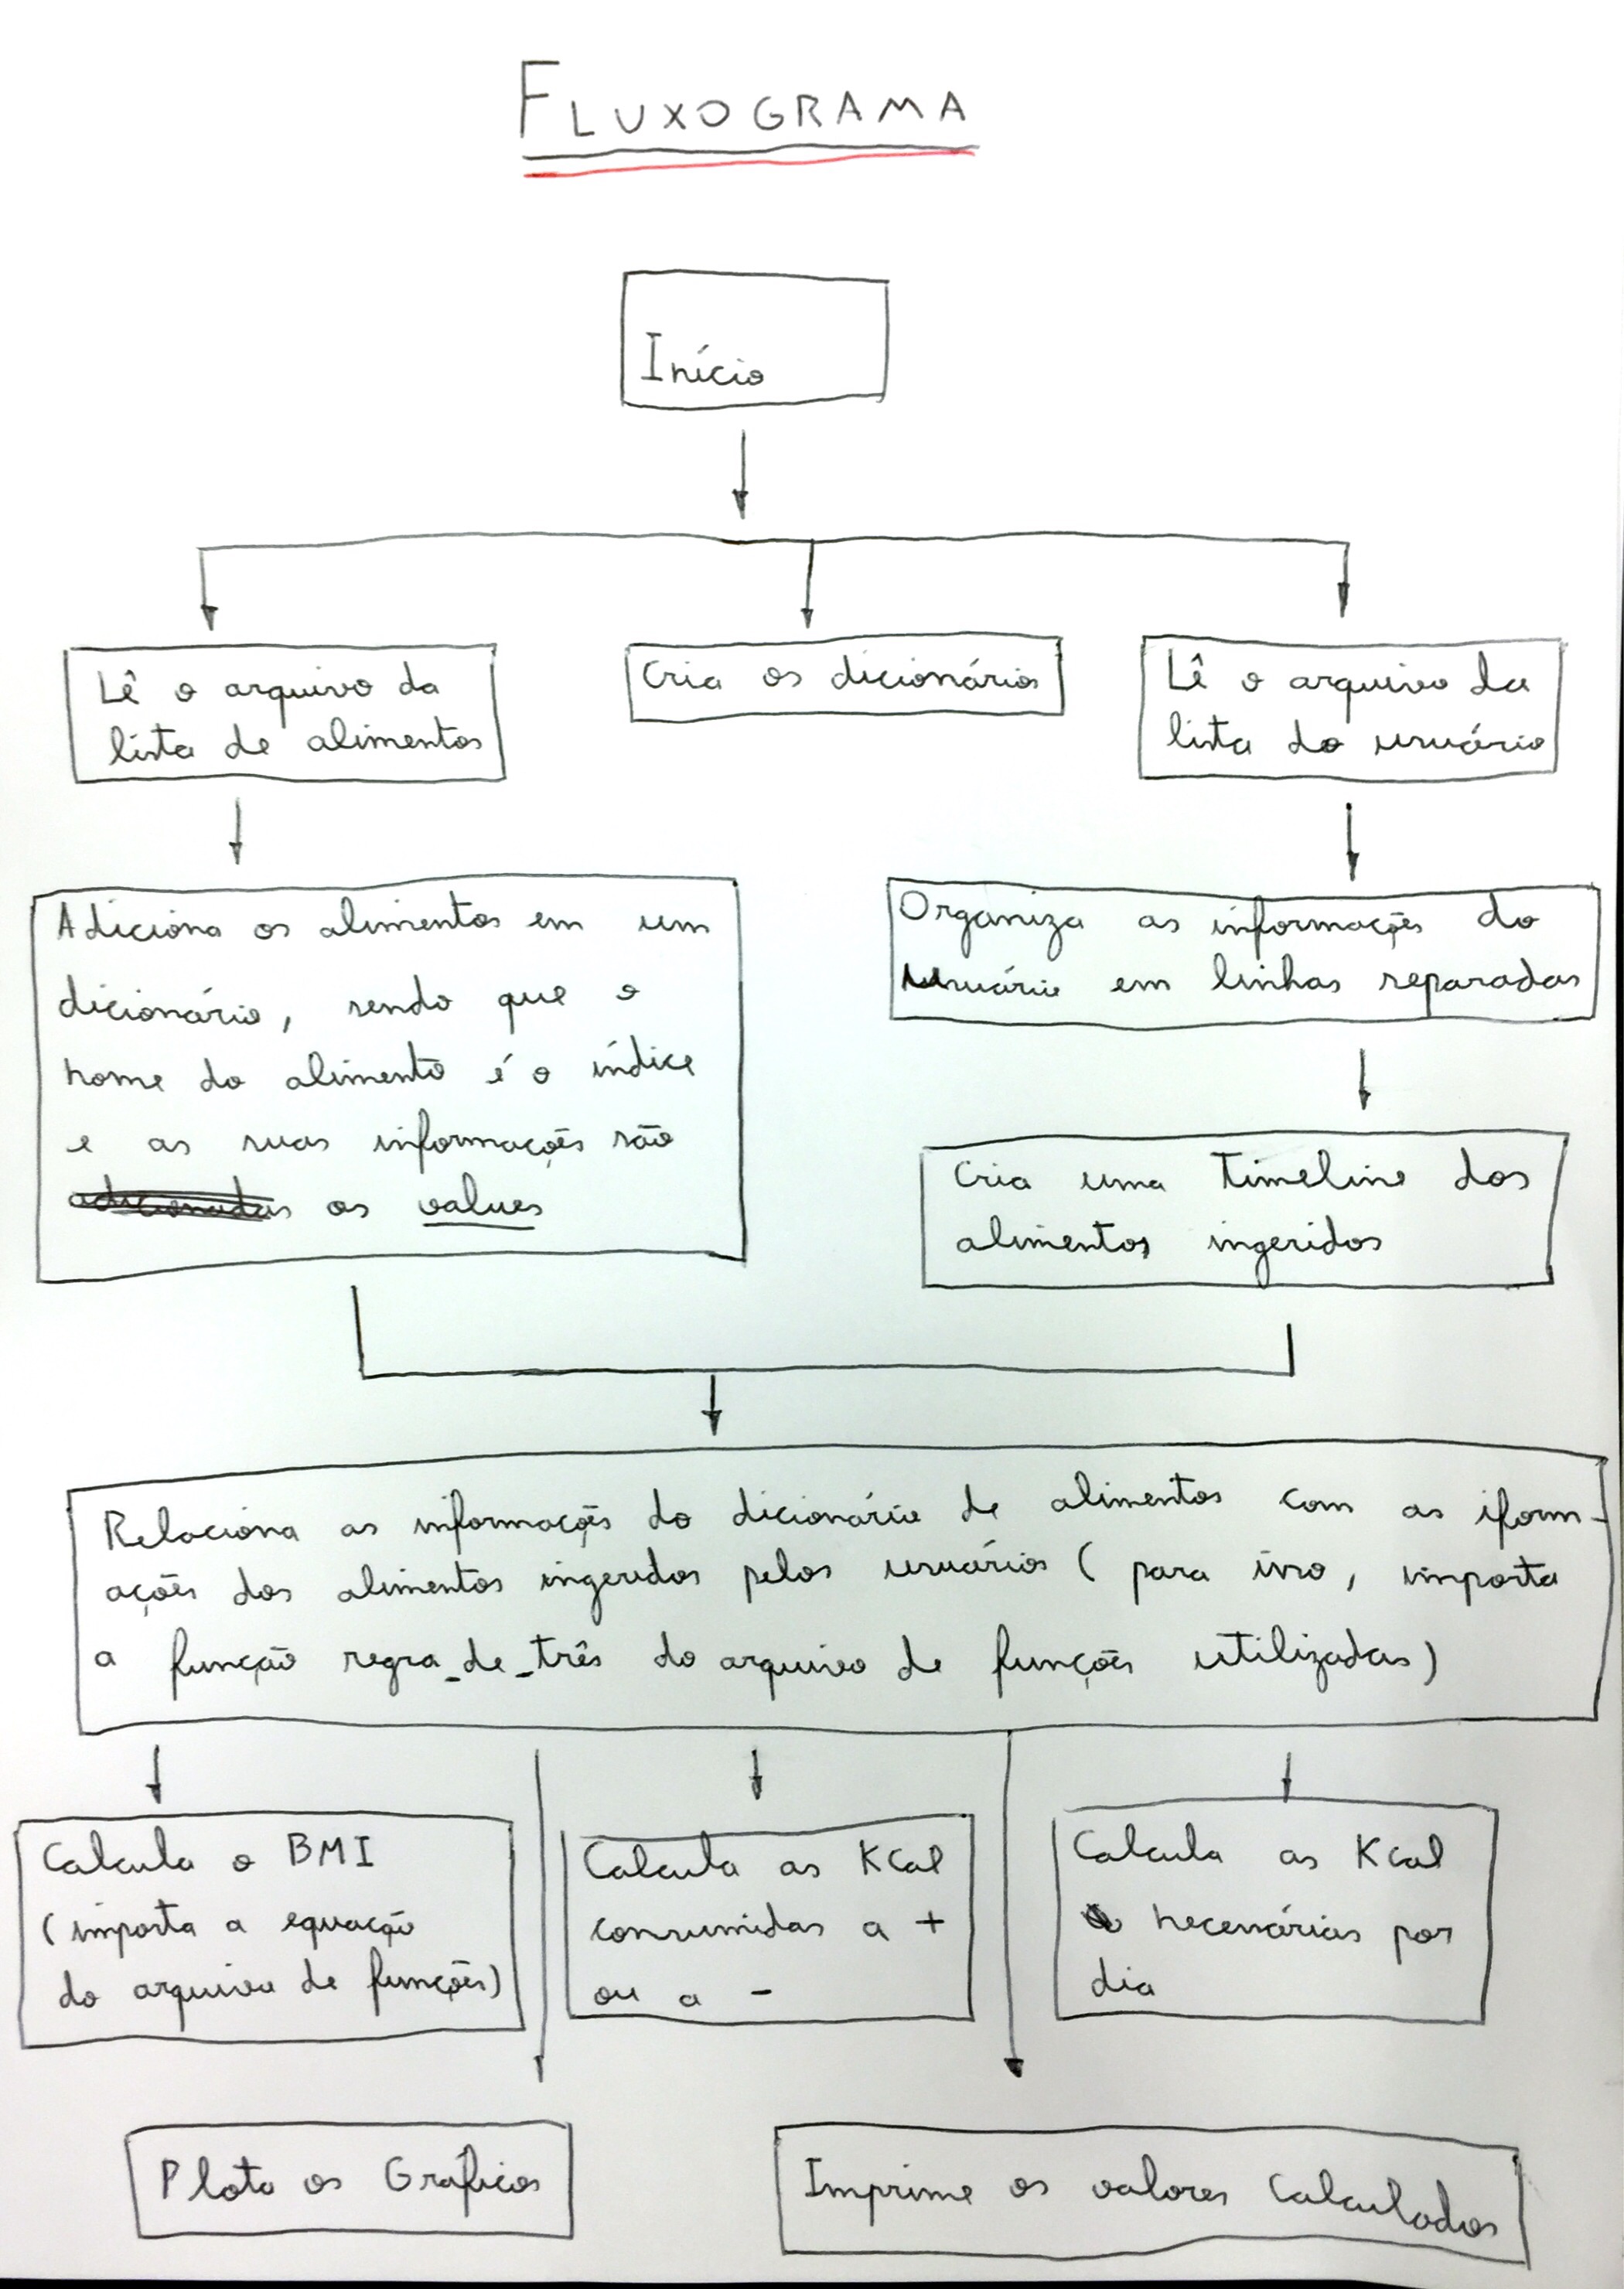 FLUXOGRAMA
Início
Lê o arquivo da
lista de alimentos
Cria os dicionários
Lê o arquivo da
lista do usuário
Adiciona os alimentos em um
dicionário, sendo que o
nome do alimento é o índice
e as suas informações são
adicionadas os values
Organiza as informações do
Usuário em linhas separadas
Cria uma timeline dos
alimentos ingeridos
Relaciona as informações do dicionário de alimentos com as iform-
ações dos alimentos ingeridos pelos usuários ( para isso, importa
a função regra_de_três do arquivo de funções utilizadas)
Calcula o BMI
(importa a equação
do arquivo de funções)
Calcula as KCal
consumidas a +
ou a -
Calcula as Kcal
necessárias por
dia
Plota os Gráficos
Imprime os valores Calculados